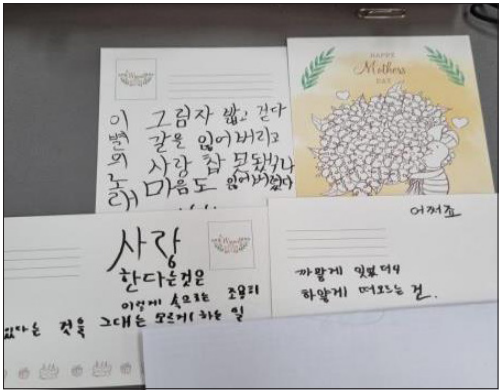 이별의노래
그림자 밟고 걷다
길을 잃어버리고
사랑 참 못됐구나
마음도 잃어버렸다
HAPPY
Mothers
DAY
사랑
한다는것은
이렇게 속으로는 조용히
있다는 것을 그대는 모르게 하는 일
어쩌죠
까맣게 잊었더니
하얗게 떠오르는 건.